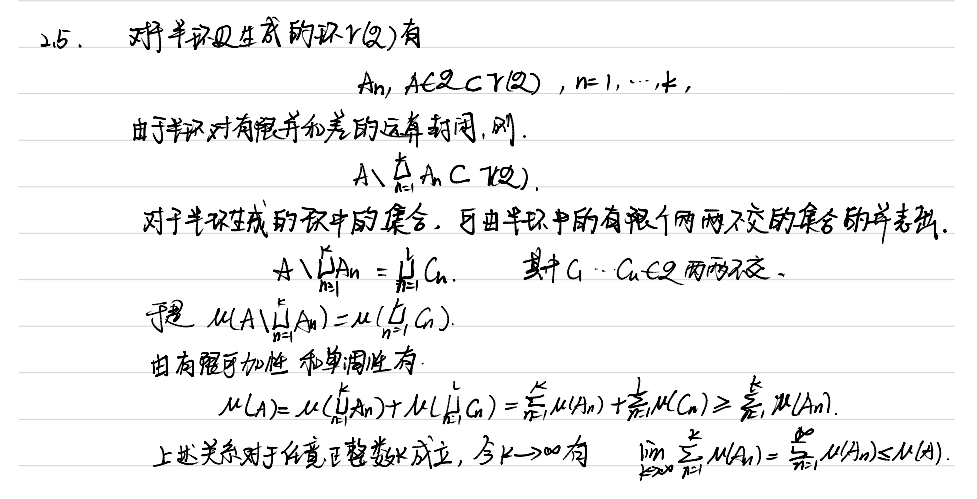 2.5. 对于半环𝒬生成的环r(𝒬)有
An, A∈𝒬⊂r(𝒬), n=1,…,k,
由于半环对有限并和差的运算封闭,则.
A\⋃_{n=1}^{k} An ⊂ r(𝒬).
对于半环生成的环中的集合,可由半环中的有限个两两不交的集合的并表出.
A\⋃_{n=1}^{k} An = ⋃_{n=1}^{l} Cn. 其中 C1 … Cn∈𝒬 两两不交.
于是 μ(A\⋃_{n=1}^{k} An)=μ(⋃_{n=1}^{l} Cn).
由有限可加性和单调性有.
μ(A)=μ(⋃_{n=1}^{k} An)+μ(⋃_{n=1}^{l} Cn)=∑_{n=1}^{k} μ(An)+∑_{n=1}^{l} μ(Cn)≥∑_{n=1}^{k} μ(An).
上述关系对于任意正整数k成立,令k→∞有 lim_{k→∞} ∑_{n=1}^{k} μ(An)=∑_{n=1}^{∞} μ(An)≤μ(A).